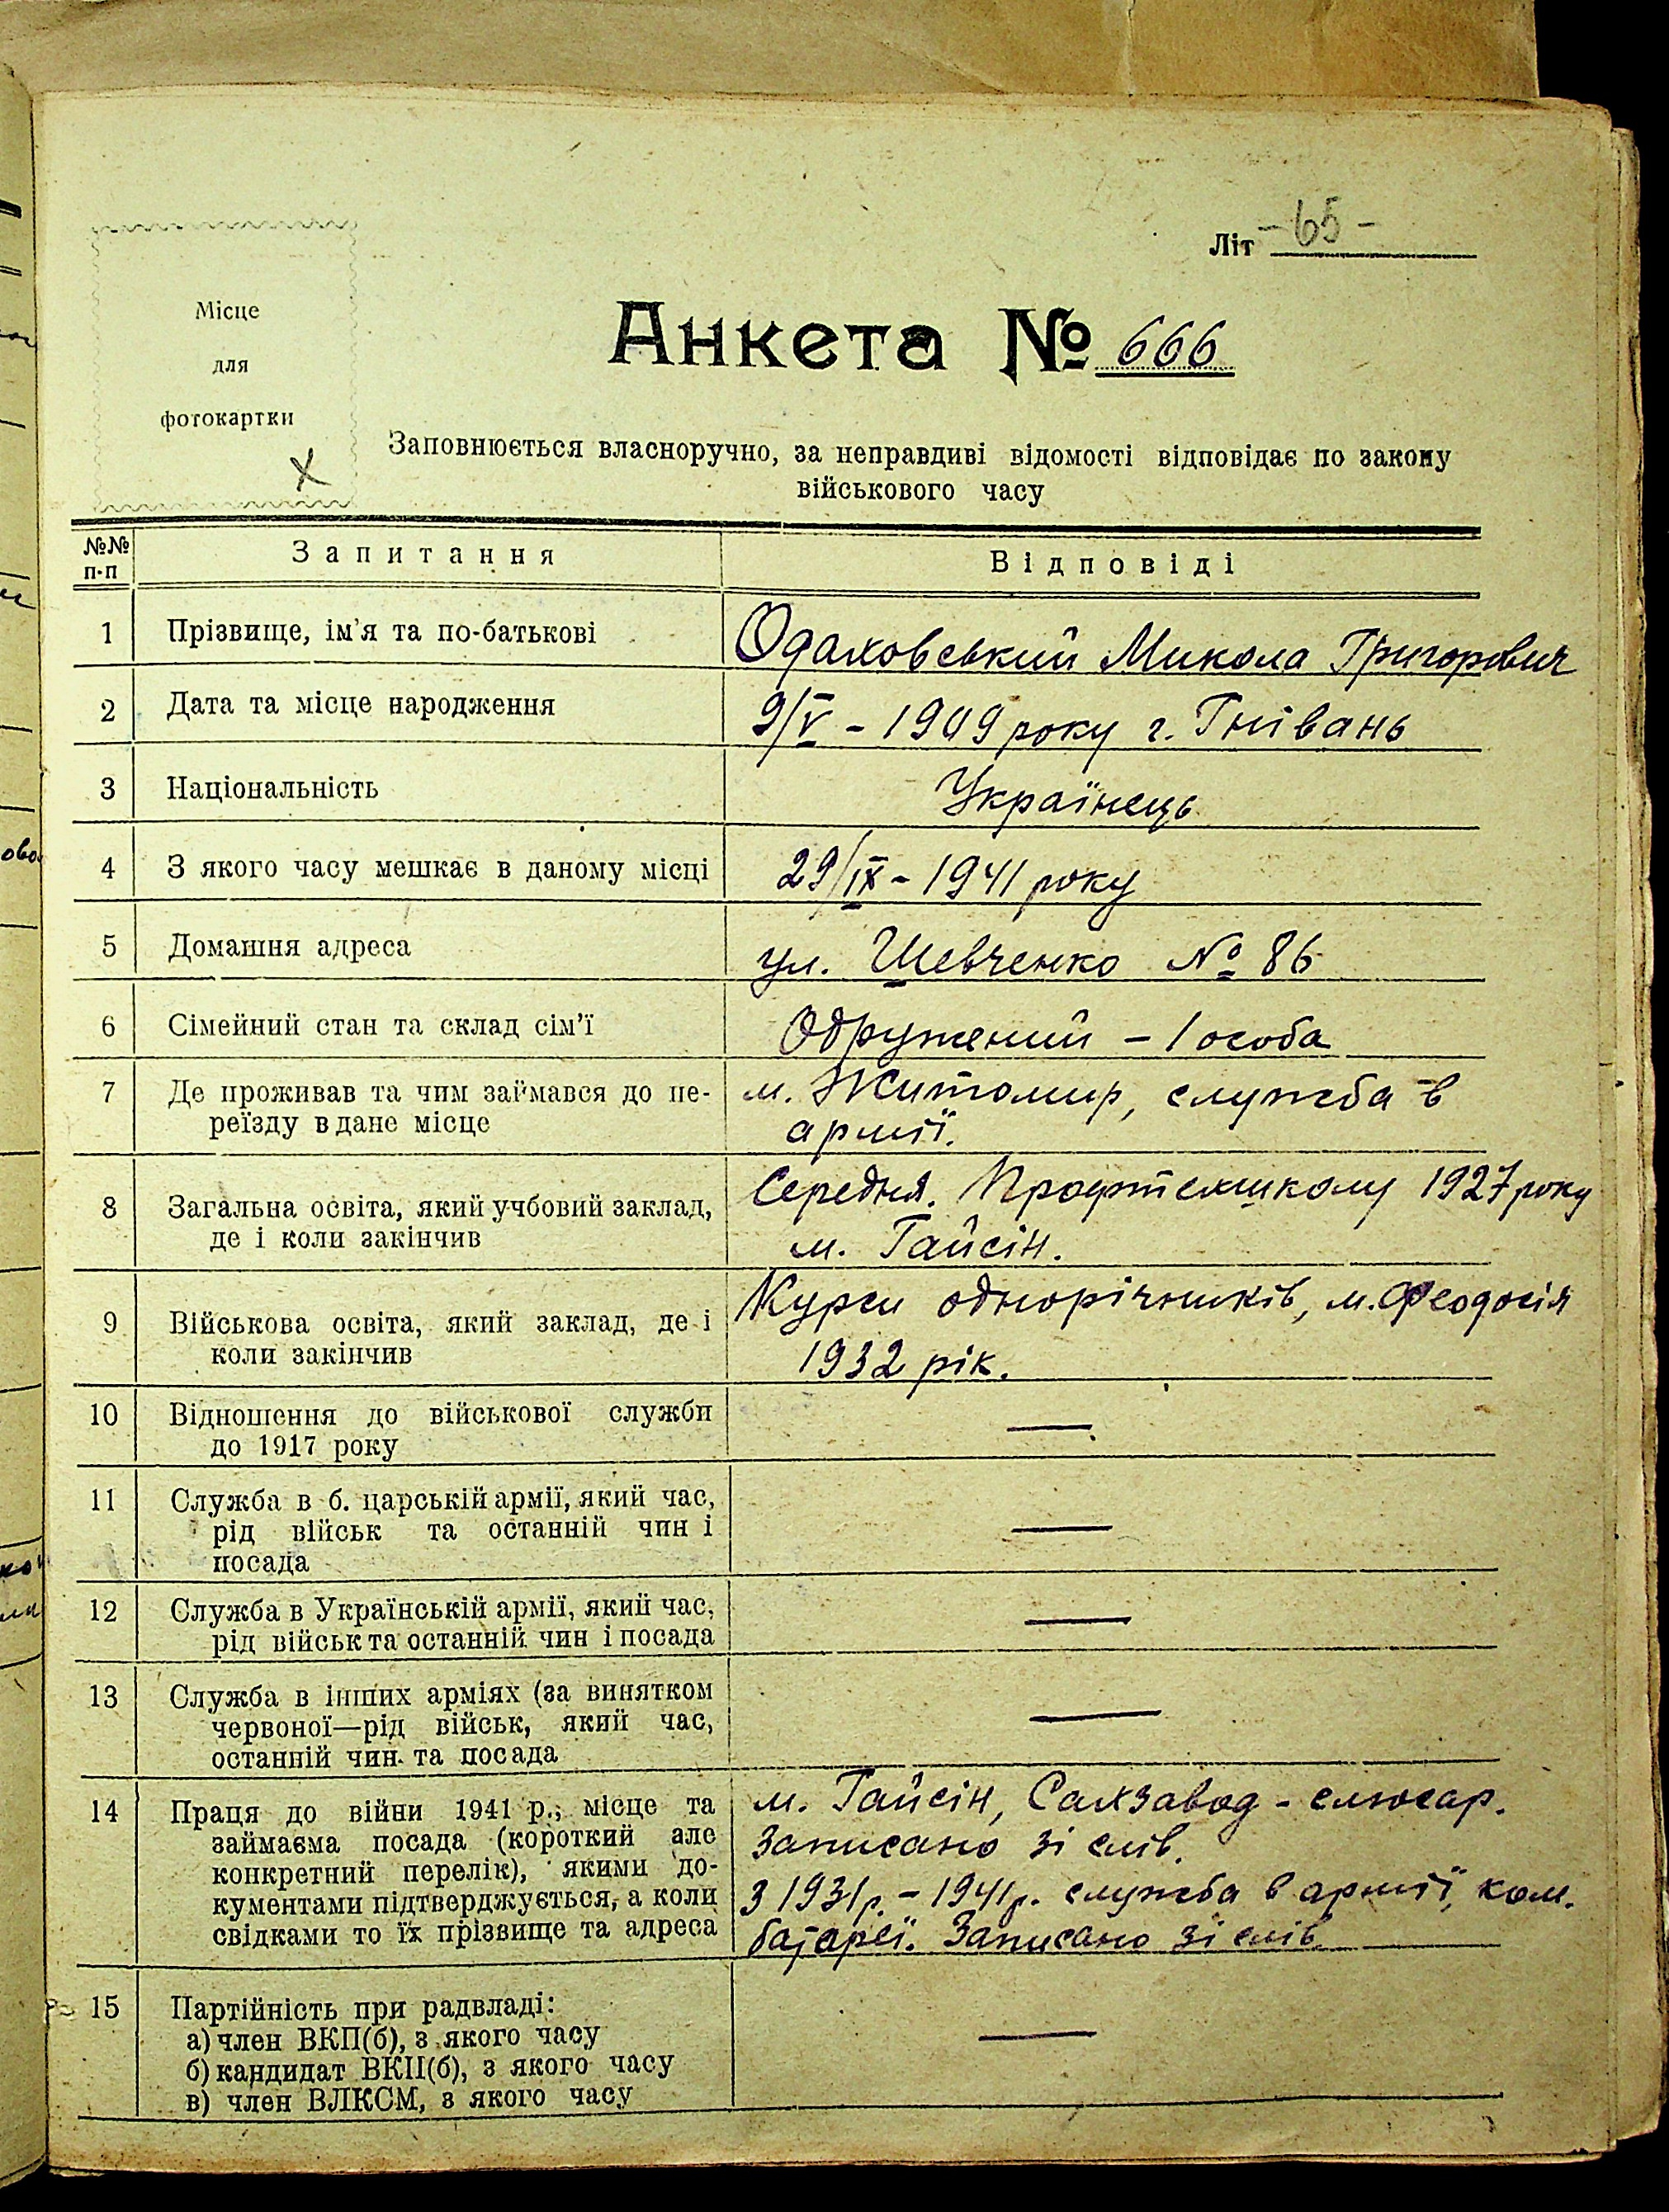 Літ -65-
Місце
для
фотокартки
Анкета № 666
Заповнюється власноручно, за неправдиві відомості відповідає по закону
військового часу
№№ п-п Запитання Відповіді
1 Прізвище, ім'я та по-батькові Одаховський Микола Григорович
2 Дата та місце народження 9/V - 1909 року г. Гнівань
3 Національність Українець
4 З якого часу мешкає в даному місці 29/IX - 1941 року
5 Домашня адреса ул. Шевченко № 86
6 Сімейний стан та склад сім'ї Одружений - 1 особа
7 Де проживав та чим займався до пе-
реїзду в дане місце
м. Житомир, служба в
армії.
8 Загальна освіта, який учбовий заклад,
де і коли закінчив
Середня. Профтехшколу 1927 року
м. Гайсін.
9 Військова освіта, який заклад, де і
коли закінчив
Курси однорічників, м. Феодосія
1932 рік.
10 Відношення до військової служби
до 1917 року
—
11 Служба в б. царській армії, який час,
рід військ та останній чин і
посада
—
12 Служба в Українській армії, який час,
рід військ та останній чин і посада
—
13 Служба в інших арміях (за винятком
червоної—рід військ, який час,
останній чин та посада
—
14 Праця до війни 1941 р., місце та
займаєма посада (короткий але
конкретний перелік), якими до-
кументами підтверджується, а коли
свідками то їх прізвище та адреса
м. Гайсін, Сахзавод - слюсар.
Записано зі слів.
З 1931 р. - 1941 р. служба в армії, ком.
батареї. Записано зі слів
15 Партійність при радвладі:
а) член ВКП(б), з якого часу
б) кандидат ВКП(б), з якого часу
в) член ВЛКСМ, з якого часу
—